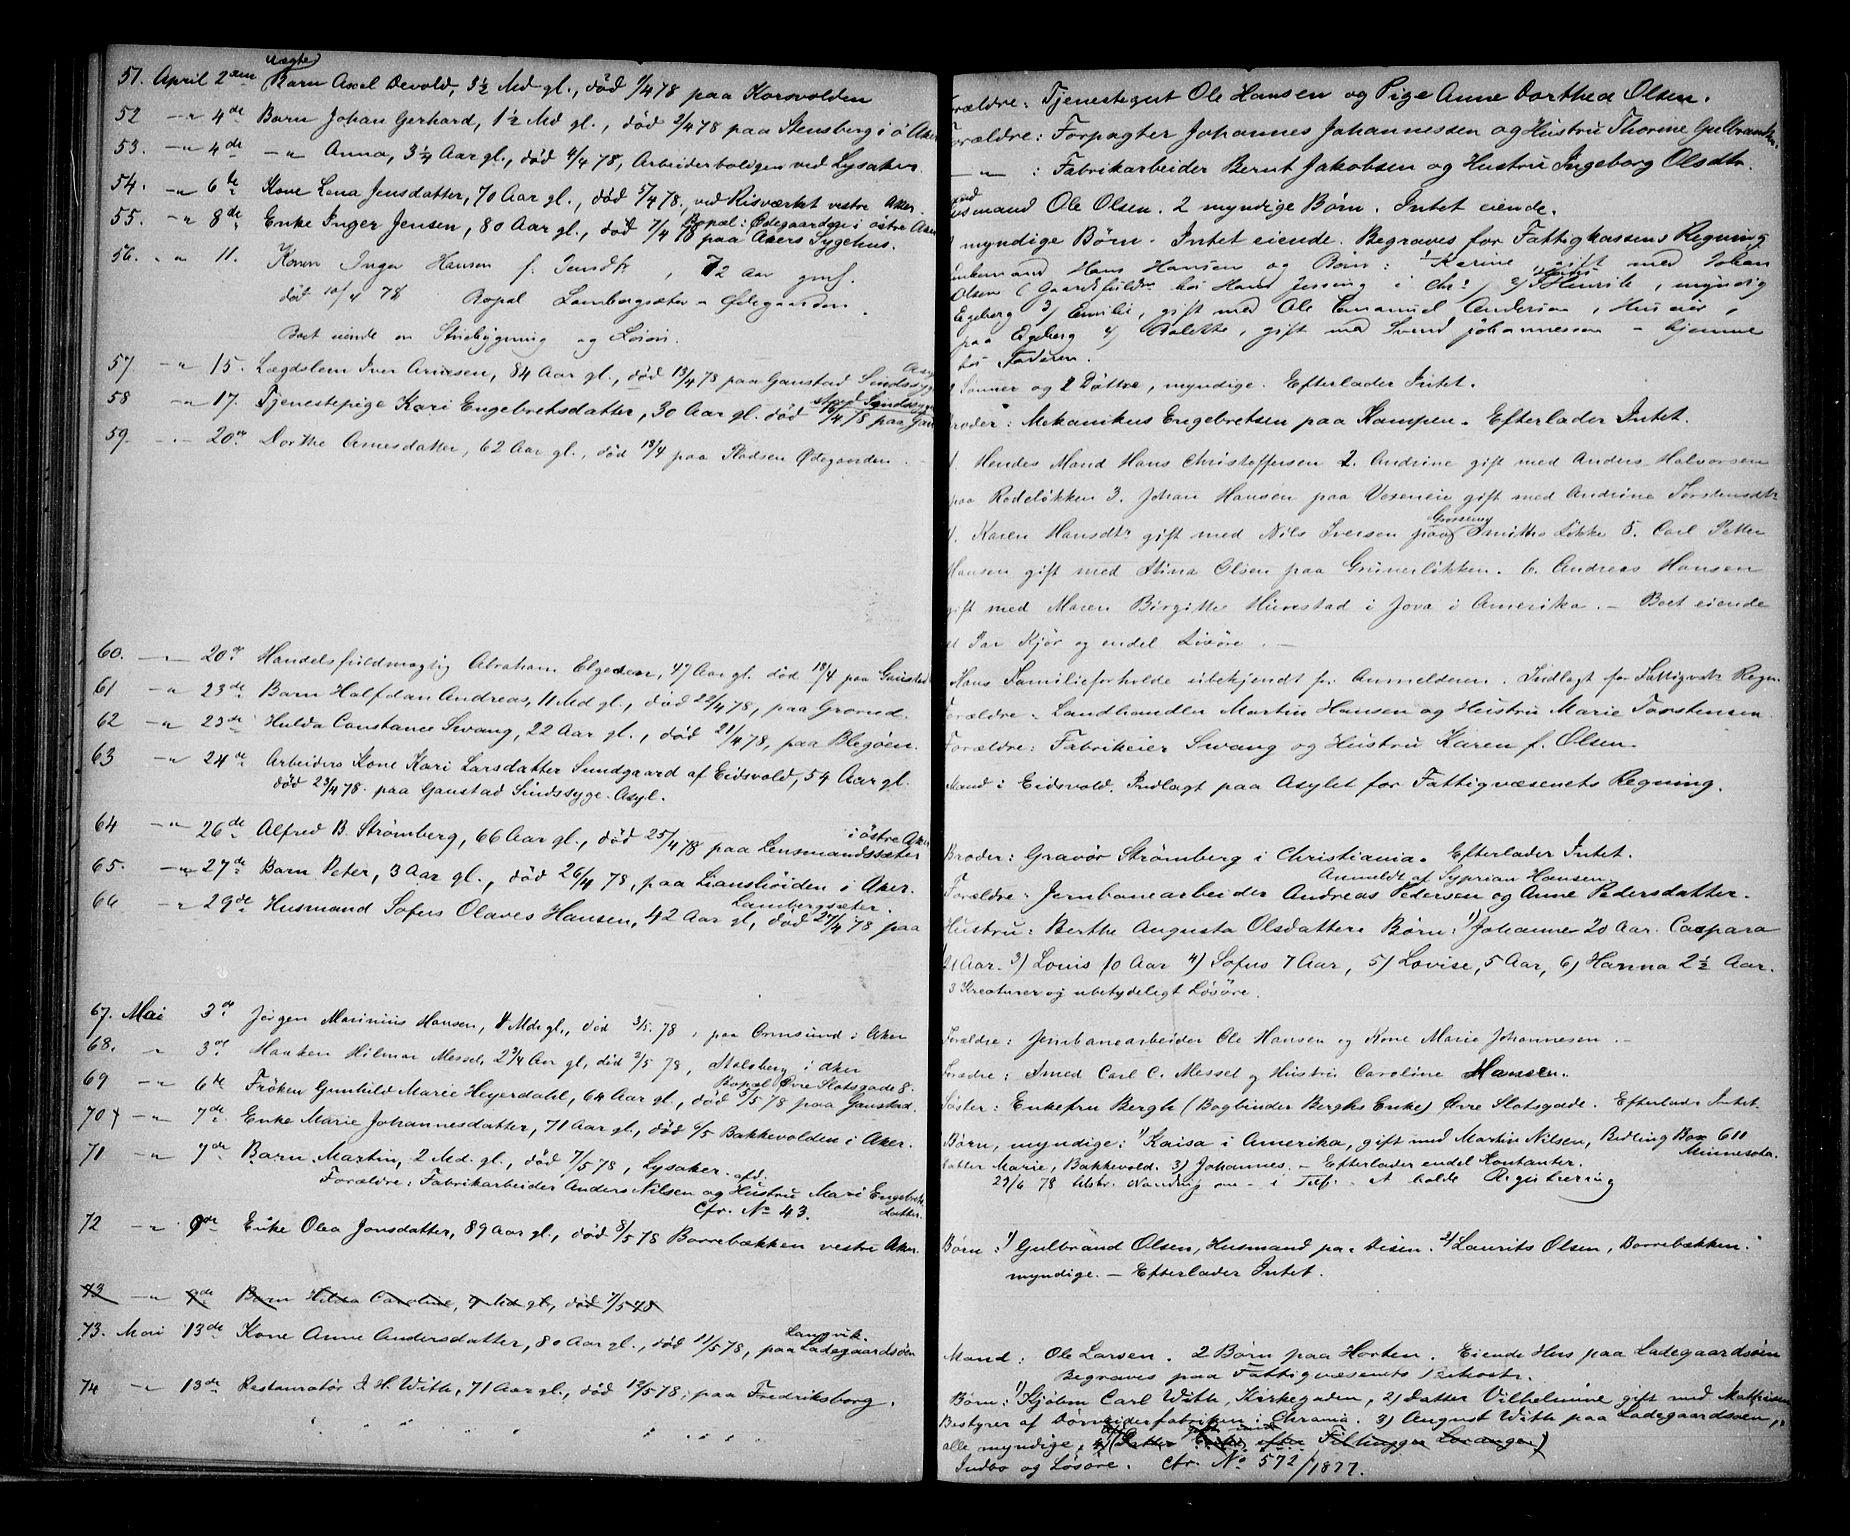 uægte
51. April 2den Barn Axel Devold, 3½ Md gl., død 1/4 78 paa Korsvolden
52 -"- 4de Barn Johan Gerhard, 1½ Md gl., død 2/4 78 paa Stensberg i ø Aker
53. -"- 4de -"- Anna, 3¼ Aar gl., død 4/4 78, Arbeiderboligen ved Lysaker.
54. -"- 6te Kone Lena Jensdatter, 70 Aar gl., død 5/4 78, ved Risværket vestre Aker.
55. -"- 8de Enke Inger Jensen, 80 Aar gl., død 7/4 78 paa Akers Sygehus.
Bopæl: Ødegaarden i østre Aker
56. " " 11. Konen Inger Hansen f. Jensdtr, 72 Aar gml.
død 10/4 78 Bopæl Lambergsæter - Ødegaarden.
Boet eiende en Stuebygning og Løsøre.
57 -"- 15. Lægdslem Iver Arnesen, 84 Aar gl., død 13/4 78 paa Gaustad Sindssyge Asyl
58 -"- 17. Tjenestepige Kari Engebretsdatter, 30 Aar gl. død 16/4 78 paa Gaustad Sindssyge
59. -"- 20de Dorthe Arnesdatter, 62 Aar gl., død 18/4 paa Pladsen Ødegaarden.
60. -"- 20de Handelsfuldmægtig Abraham Elgeden, 47 Aar gl. død 18/4 paa Gaustad
61 -"- 23de Barn Halfdan Andreas, 11 Md gl., død 22/4 78, paa Grorud.
62 -"- 23de Hulda Constance Swang, 22 Aar gl., død 21/4 78, paa Blegøen.
63 -"- 24de Arbeiders Kone Kari Larsdatter Sundgaard af Eidsvold, 54 Aar gl.
død 23/4 78 paa Gaustad Sindssyge-Asyl.
64 -"- 26de Alfred B. Strömberg, 66 Aar gl., død 25/4 78 paa Lensmandssæter i østre Aker
65. -"- 27de Barn Peter, 3 Aar gl., død 26/4 78, paa Lianshöiden i Aker.
66 -"- 29de Husmand Sofus Olaves Hansen, 42 Aar gl, død 27/4 78 paa Lambergsæter.
67. Mai 3de Jørgen Marinius Hansen, 4 Mdr gl., død 3/5 78, paa Ormsund i Aker
68. " 3de Haaken Hilmar Messel, 2¾ Aar gl, død 2/5 78, Stalsberg i Aker
69 -"- 6te Frøken Gunhild Marie Heyerdahl, 64 Aar gl., død 3/5 78 paa Gaustad.
Bopæl Øvre Slotsgade 8.
70 -"- 7de Enke Marie Johannesdatter, 71 Aar gl., død 6/5 Bakkevolden i Aker.
71 -"- 9de Barn Martin, 2 Md. gl., død 7/5 78, Lysaker.
Forældre: Fabrikarbeider Anders Nilsen og Hustru Mari Engebretsdatter.
Cfr. No 43.
72 -"- 9de Enke Olea Jonsdatter, 89 Aar gl., død 8/5 78 Borrebækken vestre Aker.
73 -"- 9de Barn Hilda Caroline, 9 Md gl, død 7/5 78
73. Mai 13de Kone Anne Andersdatter, 80 Aar gl., død 11/5 78, paa Ladegaardsøen
Langvik.
74 -"- 13de Restauratør J. H. With, 71 Aar gl., død 12/5 78, paa Fredriksborg.
Forældre: Tjenestegut Ole Hansen og Pige Anne Dorthea Olsen.
Forældre: Forpagter Johannes Johannessen og Hustru Thorine Gulbrandsen.
-"- : Fabrikarbeider Bernt Jakobsen og Hustru Ingeborg Olsdtr.
Husmand Ole Olsen. 2 myndige Børn. Intet eiende.
myndige Børn. Intet eiende. Begraves for Fattigkassens Regning
Enkemand Hans Hansen og Børn: 1 Karine gift med Johan
Olsen (Gaardsfuldm. hos Hans Jensen i Chr.) 2) Henrik, myndig
Egeberg 3) Emilie, gift med Ole Emanuel Andersen, Huseier,
paa Egeberg 4) Bolette, gift med Svend Johannessen - hjemme
hos Faderen.
Sønner og 2 Døttre, myndige. Efterlader Intet.
Broder: Mekanikus Engebretsen paa Kampen. Efterlader Intet.
1. Hendes Mand Hans Christoffersen 2. Andrine gift med Anders Halvorsen
paa Rodeløkken 3. Johan Hansen paa Vexeneie gift med Andrine Torstensdtr
4. Karen Hansdtr gift med Nils Iversen paa Smiths Løkke 5. Carl Petter
Hansen gift med Stina Olsen paa Grünerløkken. 6. Andreas Hansen
gift med Maren Birgitte Hurestad i Jova i Amerika. - Boet eiende
et Par Kjør og endel Løsøre. -
Hans Familieforholde ubekjendt for Anmelderen. Indlagt for Fattigv. Regn.
Forældre. Landhandler Martin Hansen og Hustru Marie Torstensen.
Forældre: Fabrikeier Swang og Hustru Karen f. Olsen.
Mand i Eidsvold. Indlagt paa Asylet for Fattigvæsenets Regning.
Broder: Gravør Strömberg i Christiania. Efterlader Intet.
Anmeldt af Syprian Hansen
Forældre: Jernbanearbeider Andreas Pedersen og Anne Pedersdatter.
Hustru: Berthe Augusta Olsdatter. Børn: 1) Johanne 20 Aar. Caspara
21 Aar. 3) Louis 10 Aar 4) Sofus 7 Aar, 5) Lovise, 5 Aar, 6) Hanna 2½ Aar.
3 Kreaturer og ubetydeligt Løsøre.
Forældre: Jernbanearbeider Ole Hansen og Kone Marie Johannesen. -
Forældre: Smed Carl C. Messel og Hustru Caroline Hansen.
Søster: Enkefru Bergh (Bogbinder Berghs Enke) Øvre Slotsgade. Efterlader Intet.
Børn, myndige: 1) Kaisa i Amerika, gift med Martin Nilsen, Bedling Box 611
Minnesota.
Datter Marie, Bakkevold. 3) Johannes. - Efterlader endel Kontanter.
29/6 78 at holde Registrering
Børn: 1) Gulbrand Olsen, Husmand paa Disen. 2) Laurits Olsen, Borrebækken.
myndige. - Efterlader Intet.
Mand: Ole Larsen. 2 Børn paa Horten. Eiende Hus paa Ladegaardsøen
Begraves paa Fattigvæsenets Bekostn.
Børn: 1) Kjøbm Carl With, Kirkegaden, 2) Datter Vilhelmine gift med
Bestyrer af i Chrania. 3) August With paa Ladegaardsøen,
alle myndige,
Indbo og Løsøre. Cfr. No 572/1877.